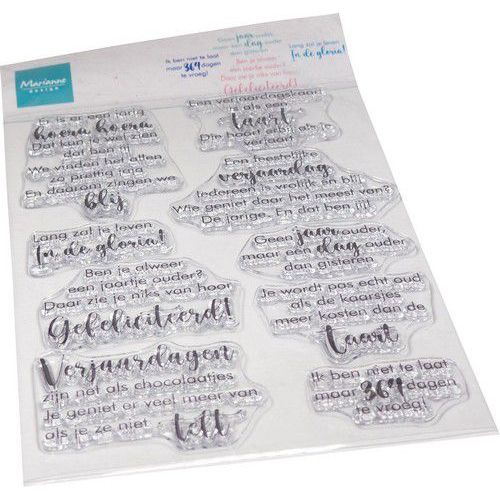 Marianne
design
Geen jaar ouder
maar een dag ouder
dan gisteren
Ik ben niet te laat
maar 364 dagen
te vroeg!
Ben je alweer
een jaartje ouder?
Daar zie je niks van hoor
Gefeliciteerd!
Lang zal je leven
In de gloria!
Er is er een jarig
hoera hoera
Dat kan je wel zien
dat ben jij
We vinden het allen
zo prettig ja
En daarom zingen we
blij
Een verjaardagstaart
is als een
taart
Die hoort erbij als je
verjaart
Een feestelijke
verjaardag
Iedereen is vrolijk en blij
Wie geniet daar het meest van?
De jarige. En dat ben jij!
Lang zal je leven
In de gloria!
Geen jaar ouder
maar een dag ouder
dan gisteren
Ben je alweer
een jaartje ouder?
Daar zie je niks van hoor
Gefeliciteerd!
Je wordt pas echt oud
als de kaarsjes
meer kosten dan de
taart
Verjaardagen
zijn net als chocolaatjes
Je geniet er veel meer van
als je ze niet
telt
Ik ben niet te laat
maar 364 dagen
te vroeg!